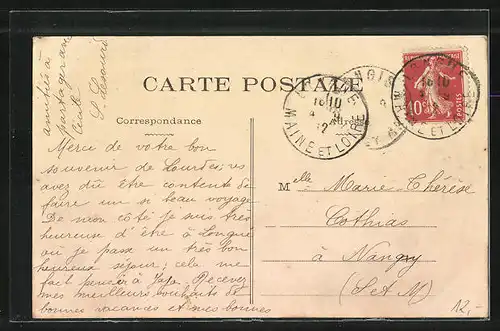 amitiés à
partager avec
Cécile
CARTE POSTALE
Correspondance
Adresse
Merci de votre bon
souvenir de Lourdes; vs
avez dû être contente de
faire un si beau voyage
De mon côté je suis très
heureuse d'être à Longué
où je passe un très bon
heureux séjour; cela me
fait penser à Jaja. Recevez
mes meilleurs souhaits de
bonnes vacances et mes bonnes
Melle Marie-Thérèse
Cothias
à Nangis
(S et M)
MAINE ET LOIRE
10c
POSTES
12,-